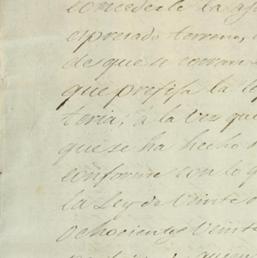 concederle la
espresado terreno,
de que se
que profesa la
teria, á la vez que
que se ha hecho
conforme con lo q
la Ley de Veinte
Ochocientos Veint